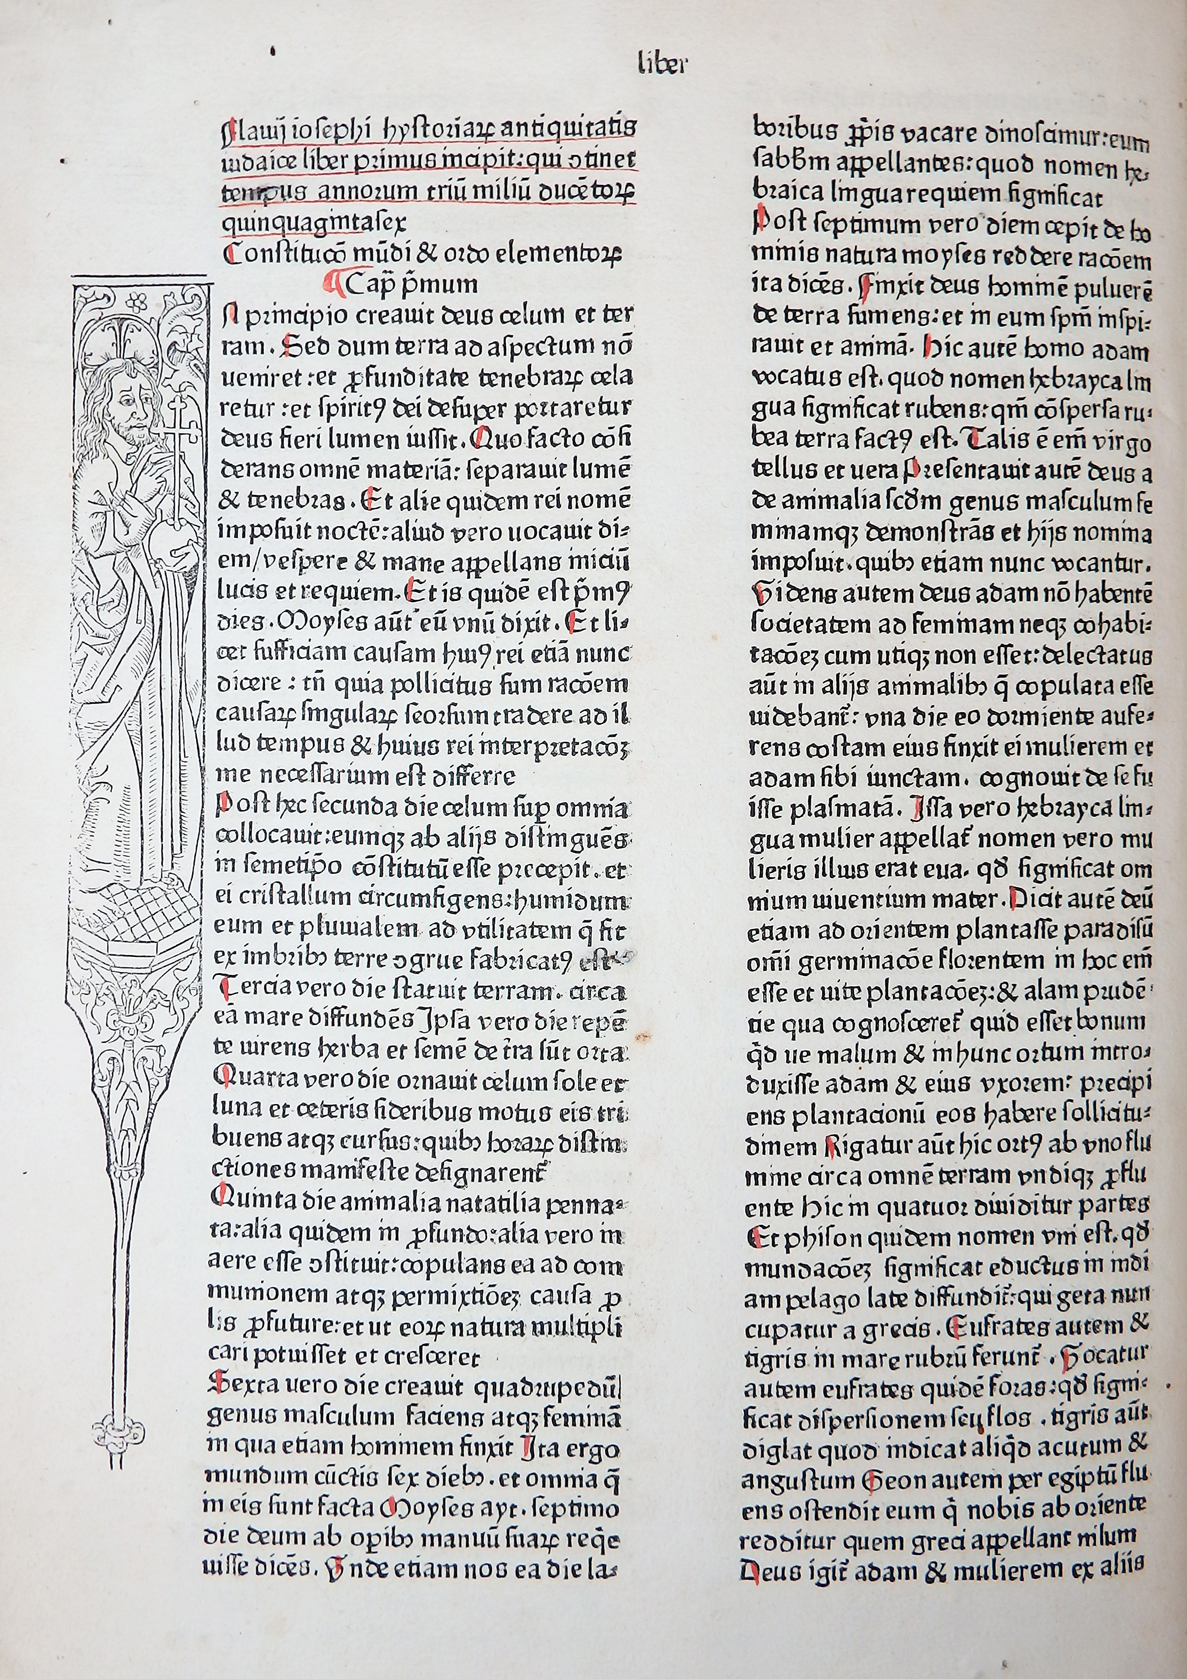 liber
Flauij iosephi hystoriaꝝ antiquitatis
iudaice liber primus incipit: qui ↄtinet
tempus annorum triū miliū ducētoꝝ
quinquagintasex
Constitucō mūdi & ordo elementoꝝ
¶ Cap̄ p̄mum
N principio creauit deus celum et ter
ram. Sed dum terra ad aspectum nō
ueniret: et ꝓfunditate tenebraꝝ cela
retur: et spiritꝰ dei desuper portaretur
deus fieri lumen iussit. Quo facto cōsi
derans omnē materiā: separauit lumē
& tenebras. Et alie quidem rei nomē
imposuit noctē: aliud vero uocauit di⸗
em/vespere & mane appellans iniciū
lucis et requiem. Et is quidē est p̄mꝰ
dies. Moyses aūt eū vnū dixit. Et li⸗
cet sufficiam causam huiꝰ rei etiā nunc
dicere: tn̄ quia pollicitus sum racōem
causaꝝ singulaꝝ seorsum tradere ad il
lud tempus & huius rei interpretacōꝫ
me necessarium est differre
Post hec secunda die celum suꝑ omnia
collocauit: eumqꝫ ab alijs distinguēs
in semetip̄o cōstitutū esse precepit. et
ei cristallum circumfigens: humidum
eum et pluuialem ad vtilitatem q̄ fit
ex imbribꝫ terre ↄgrue fabricatꝰ est
Tercia vero die statuit terram. circa
eā mare diffundēs Ipsa vero die repē
te uirens herba et semē de t̄ra sūt orta
Quarta vero die ornauit celum sole et
luna et ceteris sideribus motus eis tri
buens atqꝫ cursus: quibꝫ horaꝝ distin
ctiones manifeste designarent᷑
Quinta die animalia natatilia penna⸗
ta: alia quidem in ꝓfundo: alia vero in
aere esse ↄstituit: copulans ea ad com
munionem atqꝫ permixtiōeꝫ causa ꝓ
lis ꝓfuture: et ut eoꝝ natura multipli
cari potuisset et cresceret
Sexta uero die creauit quadrupedū
genus masculum faciens atqꝫ feminā
in qua etiam hominem finxit Ita ergo
mundum cūctis sex diebꝫ. et omnia q̄
in eis sunt facta Moyses ayt. septimo
die deum ab oꝑibꝫ manuū suaꝝ reqͥe
uisse dicēs. Vnde etiam nos ea die la⸗
boribus ꝓp̄is vacare dinoscimur: eum
sabb̄m appellantes: quod nomen he⸗
braica lingua requiem significat
Post septimum vero diem cepit de ho
minis natura moyses reddere racōem
ita dicēs. Finxit deus hominē puluerē
de terra sumens: et in eum sp̄m inspi⸗
rauit et animā. Hic autē homo adam
vocatus est. quod nomen hebrayca lin
gua significat rubens: qm̄ cōspersa ru⸗
bea terra factꝰ est. Talis ē em̄ virgo
tellus et uera Presentauit autē deus a
de animalia scd̄m genus masculum fe
minamqꝫ demonstrās et hijs nomina
imposuit. quibꝫ etiam nunc vocantur.
Videns autem deus adam nō habentē
societatem ad feminam neqꝫ cohabi⸗
tacōeꝫ cum utiqꝫ non esset: delectatus
aūt in alijs animalibꝫ q̄ copulata esse
uidebant᷑: vna die eo dormiente aufe⸗
rens costam eius finxit ei mulierem et
adam sibi iunctam. cognouit de se fu
isse plasmatā. Issa vero hebrayca lin⸗
gua mulier appellat᷑ nomen vero mu
lieris illius erat eua. qd̄ significat om
nium uiuentium mater. Dicit autē deū
etiam ad orientem plantasse paradisū
om̄i germinacōe florentem in hoc em̄
esse et uite plantacōeꝫ: & aliam prudē
tie qua cognosceret᷑ quid esset bonum
qͥd ue malum & in hunc ortum intro⸗
duxisse adam & eius vxorem: precipi
ens plantacionū eos habere sollicitu⸗
dinem Rigatur aūt hic ortꝰ ab vno flu
mine circa omnē terram vndiqꝫ ꝓflu
ente Hic in quatuor diuiditur partes
Et phison quidem nomen vni est. qd̄
mundacōeꝫ significat eductus in indi
am pelago late diffundit᷑: qui geta nun
cupatur a grecis. Eufrates autem &
tigris in mare rubrū ferunt᷑. Vocatur
autem eufrates quidē foras: qd̄ signi⸗
ficat dispersionem seu flos. tigris aūt
diglat quod indicat aliqͥd acutum &
angustum Geon autem per egiptū flu
ens ostendit eum qͥ nobis ab oriente
redditur quem greci appellant nilum
Deus igit᷑ adam & mulierem ex aliis